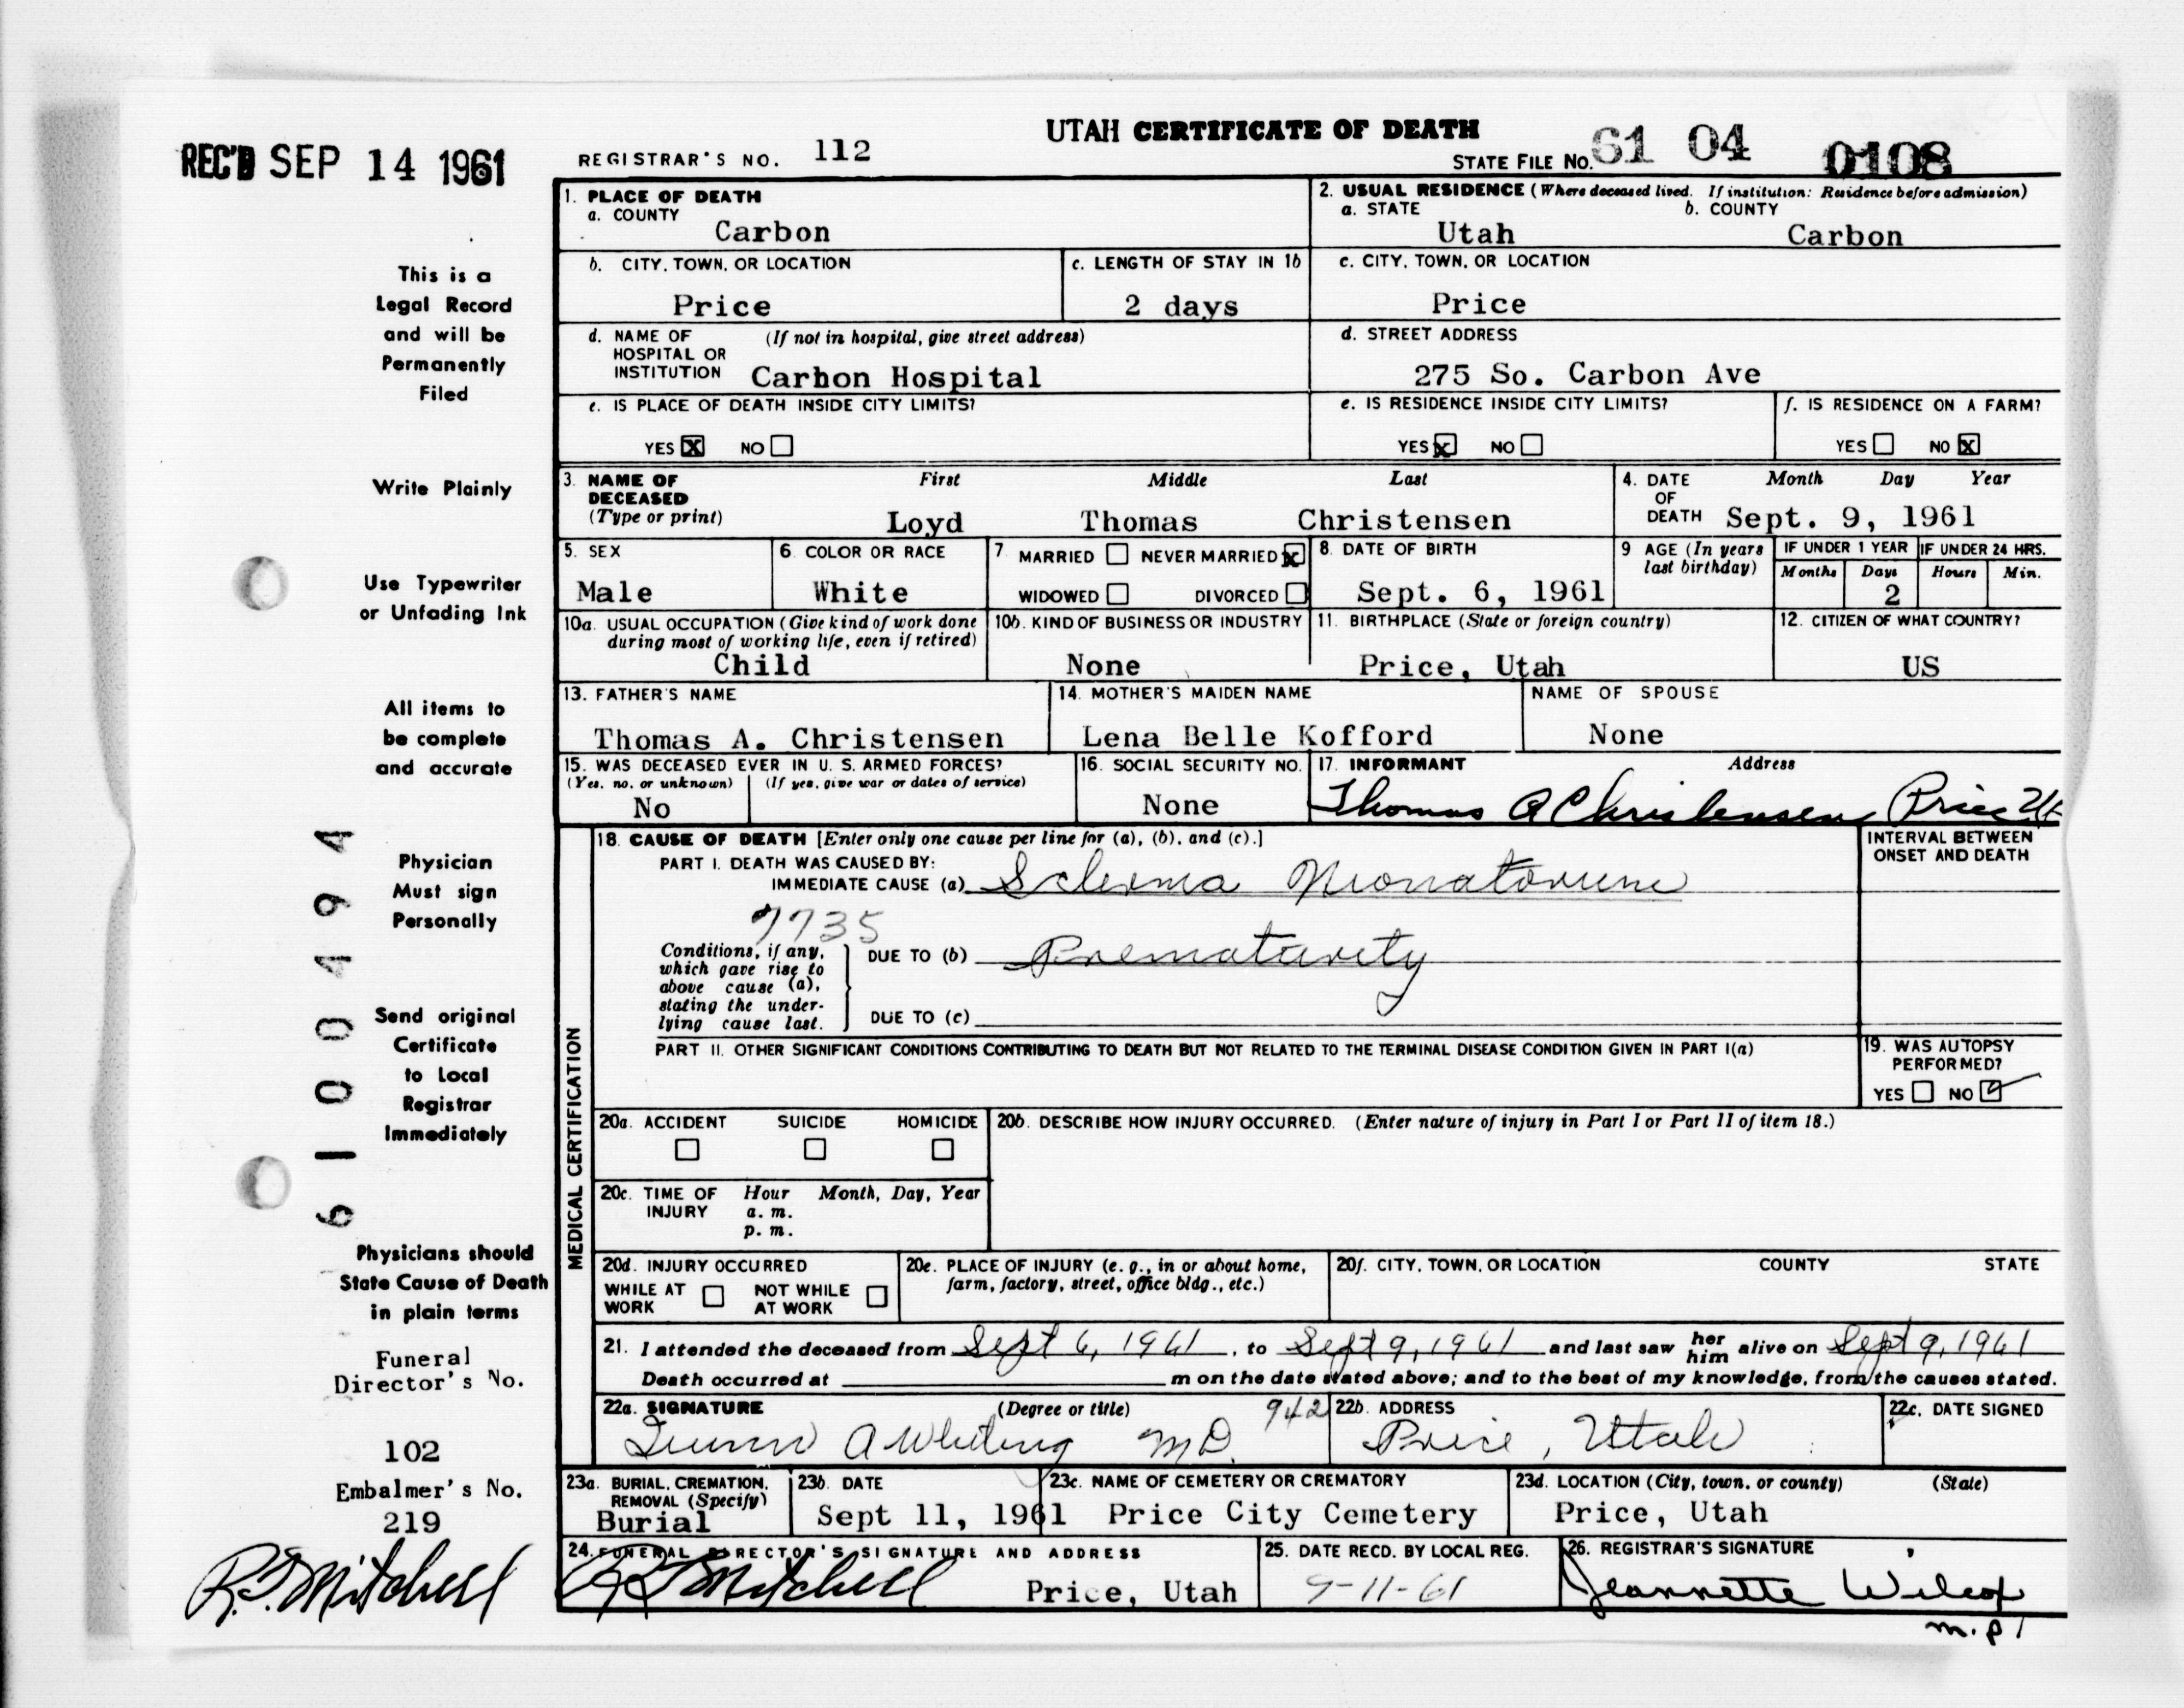 UTAH CERTIFICATE OF DEATH
REC'D SEP 14 1961
REGISTRAR'S NO. 112
STATE FILE NO. 61 04 0108
This is a
Legal Record
and will be
Permanently
Filed
Write Plainly
Use Typewriter
or Unfading Ink
All items to
be complete
and accurate
Physician
Must sign
Personally
Send original
Certificate
to Local
Registrar
Immediately
Physicians should
State Cause of Death
in plain terms
Funeral
Director's No.
102
Embalmer's No.
219
R.T. Mitchell
6100494
1. PLACE OF DEATH
a. COUNTY
Carbon
2. USUAL RESIDENCE (Where deceased lived. If institution: Residence before admission)
a. STATE b. COUNTY
Utah Carbon
b. CITY, TOWN, OR LOCATION
Price
c. LENGTH OF STAY IN 1b
2 days
c. CITY, TOWN, OR LOCATION
Price
d. NAME OF (If not in hospital, give street address)
HOSPITAL OR
INSTITUTION Carbon Hospital
d. STREET ADDRESS
275 So. Carbon Ave
e. IS PLACE OF DEATH INSIDE CITY LIMITS?
YES X NO
e. IS RESIDENCE INSIDE CITY LIMITS?
YES X NO
f. IS RESIDENCE ON A FARM?
YES NO X
3. NAME OF First Middle Last
DECEASED
(Type or print) Loyd Thomas Christensen
4. DATE Month Day Year
OF
DEATH Sept. 9, 1961
5. SEX
Male
6. COLOR OR RACE
White
7. MARRIED NEVER MARRIED X
WIDOWED DIVORCED
8. DATE OF BIRTH
Sept. 6, 1961
9 AGE (In years
last birthday)
IF UNDER 1 YEAR IF UNDER 24 HRS.
Months Days Hours Min.
2
10a. USUAL OCCUPATION (Give kind of work done
during most of working life, even if retired)
Child
10b. KIND OF BUSINESS OR INDUSTRY
None
11. BIRTHPLACE (State or foreign country)
Price, Utah
12. CITIZEN OF WHAT COUNTRY?
US
13. FATHER'S NAME
Thomas A. Christensen
14. MOTHER'S MAIDEN NAME
Lena Belle Kofford
NAME OF SPOUSE
None
15. WAS DECEASED EVER IN U. S. ARMED FORCES?
(Yes, no, or unknown) (If yes, give war or dates of service)
No
16. SOCIAL SECURITY NO.
None
17. INFORMANT Address
Thomas A Christensen Price Ut
MEDICAL CERTIFICATION
18. CAUSE OF DEATH [Enter only one cause per line for (a), (b), and (c).]
INTERVAL BETWEEN
ONSET AND DEATH
PART I. DEATH WAS CAUSED BY:
IMMEDIATE CAUSE (a) Sclerema Neonatorum
7735
Conditions, if any,
which gave rise to
above cause (a),
stating the under-
lying cause last.
DUE TO (b) Prematurity
DUE TO (c)
PART II. OTHER SIGNIFICANT CONDITIONS CONTRIBUTING TO DEATH BUT NOT RELATED TO THE TERMINAL DISEASE CONDITION GIVEN IN PART I(a)
19. WAS AUTOPSY
PERFORMED?
YES NO
20a. ACCIDENT SUICIDE HOMICIDE
20b. DESCRIBE HOW INJURY OCCURRED. (Enter nature of injury in Part I or Part II of item 18.)
20c. TIME OF Hour Month, Day, Year
INJURY a. m.
p. m.
20d. INJURY OCCURRED
WHILE AT NOT WHILE
WORK AT WORK
20e. PLACE OF INJURY (e. g., in or about home,
farm, factory, street, office bldg., etc.)
20f. CITY, TOWN, OR LOCATION COUNTY STATE
21. I attended the deceased from Sept 6, 1961, to Sept 9, 1961 and last saw her him alive on Sept 9, 1961
Death occurred at m on the date stated above; and to the best of my knowledge, from the causes stated.
22a. SIGNATURE (Degree or title) 942
A Whiting MD.
22b. ADDRESS
Price, Utah
22c. DATE SIGNED
23a. BURIAL, CREMATION,
REMOVAL (Specify)
Burial
23b. DATE
Sept 11, 1961
23c. NAME OF CEMETERY OR CREMATORY
Price City Cemetery
23d. LOCATION (City, town, or county) (State)
Price, Utah
24. FUNERAL DIRECTOR'S SIGNATURE AND ADDRESS
R T Mitchell Price, Utah
25. DATE RECD. BY LOCAL REG.
9-11-61
26. REGISTRAR'S SIGNATURE
Jeannette Wilcox